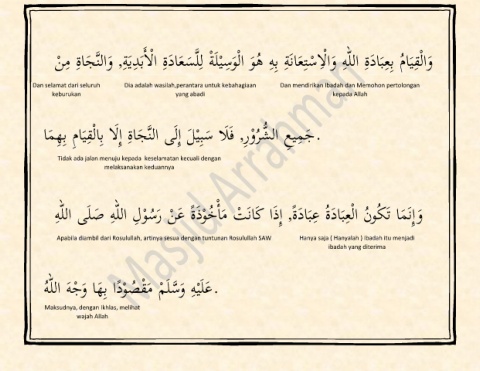 وَالْقِيَامُ بِعِبَادَةِ اللهِ وَالْاِسْتِعَانَةِ بِهِ هُوَ الْوَسِيْلَةُ لِلسَّعَادَةِ الْأَبَدِيَةِ, وَالنَّجَاةِ مِنْ
Dan mendirikan ibadah dan Memohon pertolongan
kepada Allah
Dia adalah wasilah,perantara untuk kebahagiaan
yang abadi
Dan selamat dari seluruh
keburukan
جَمِيعِ الشُّرُوْرِ, فَلَا سَبِيْلَ إِلَى النَّجَاةِ إِلَّا بِالْقِيَامِ بِهِمَا.
Tidak ada jalan menuju kepada keselamatan kecuali dengan
melaksanakan keduannya
وَإِنمَا تَكُونُ الْعِبَادَةُ عِبَادَةً, إِذَا كَانَتْ مَأْخُوْذَةً عَنْ رَسُوْلِ اللهِ صَلَى اللهِ
Hanya saja ( Hanyalah ) ibadah itu menjadi
ibadah yang diterima
Apabila diambil dari Rosulullah, artinya sesua dengan tuntunan Rosulullah SAW
عَلَيْهِ وَسَلَّمْ مَقْصُوْدًا بِهَا وَجْهَ اللهُ.
Maksudnya, dengan ikhlas, melihat
wajah Allah
Masjid Arrahman